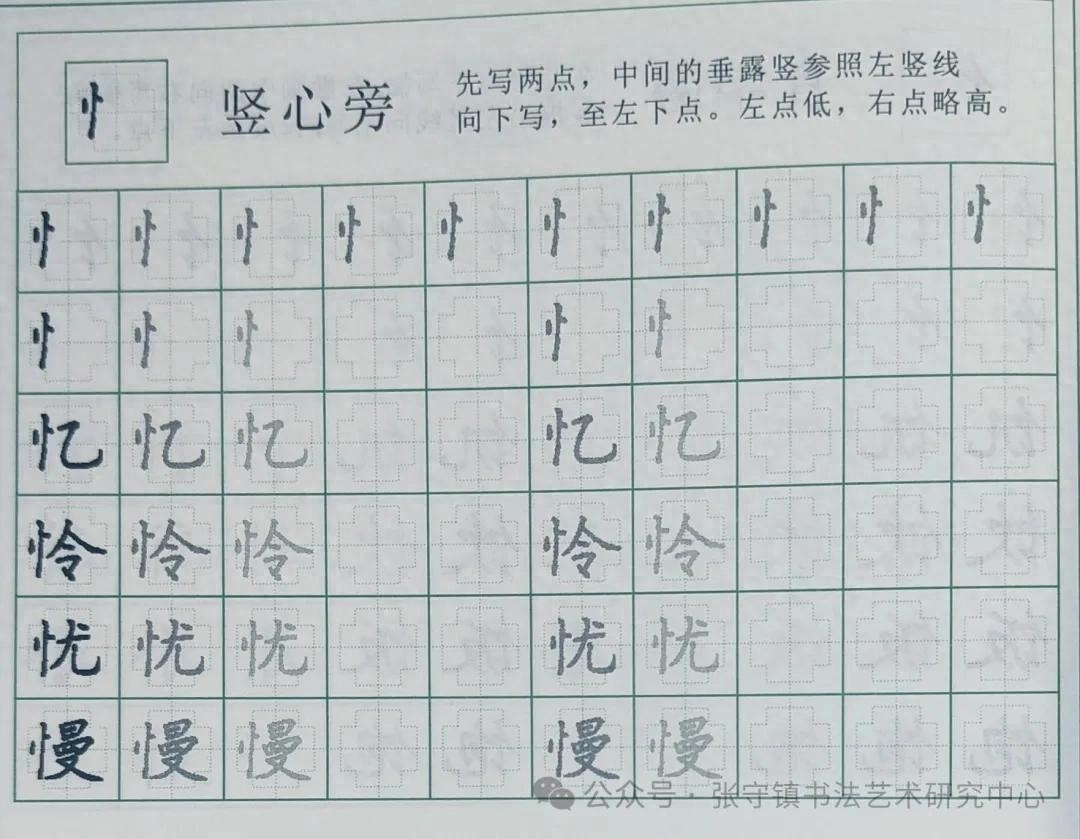 忄 竖心旁
先写两点，中间的垂露竖参照左竖线
向下写，至左下点。左点低，右点略高。
忄 忄 忄 忄 忄 忄 忄 忄 忄 忄
忄 忄 忄 忄 忄
忆 忆 忆 忆 忆
怜 怜 怜 怜 怜
忧 忧 忧 忧 忧
慢 慢 慢 慢 慢
公众号·张守镇书法艺术研究中心